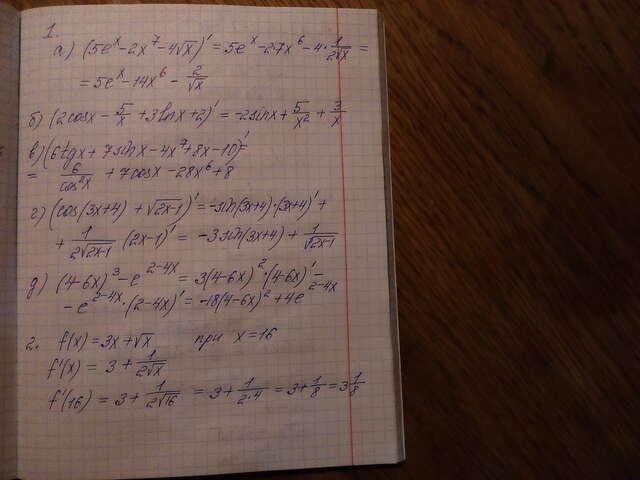 1.
а) (5e^x - 2x^7 - 4√x)' = 5e^x - 2·7x^6 - 4·1/(2√x) =
= 5e^x - 14x^6 - 2/√x
б) (2cosx - 5/x + 3lnx + 2)' = -2sinx + 5/x² + 3/x
в) (6tgx + 7sinx - 4x^7 + 8x - 10)' =
= 6/cos²x + 7cosx - 28x^6 + 8
г) (cos(3x+4) + √(2x-1))' = -sin(3x+4)·(3x+4)' +
+ 1/(2√(2x-1)) (2x-1)' = -3sin(3x+4) + 1/√(2x-1)
д) (4-6x)^3 - e^(2-4x) = 3(4-6x)^2·(4-6x)' -
- e^(2-4x)·(2-4x)' = -18(4-6x)^2 + 4e^(2-4x)
2. f(x) = 3x + √x при x = 16
f'(x) = 3 + 1/(2√x)
f'(16) = 3 + 1/(2√16) = 3 + 1/(2·4) = 3 + 1/8 = 3 1/8